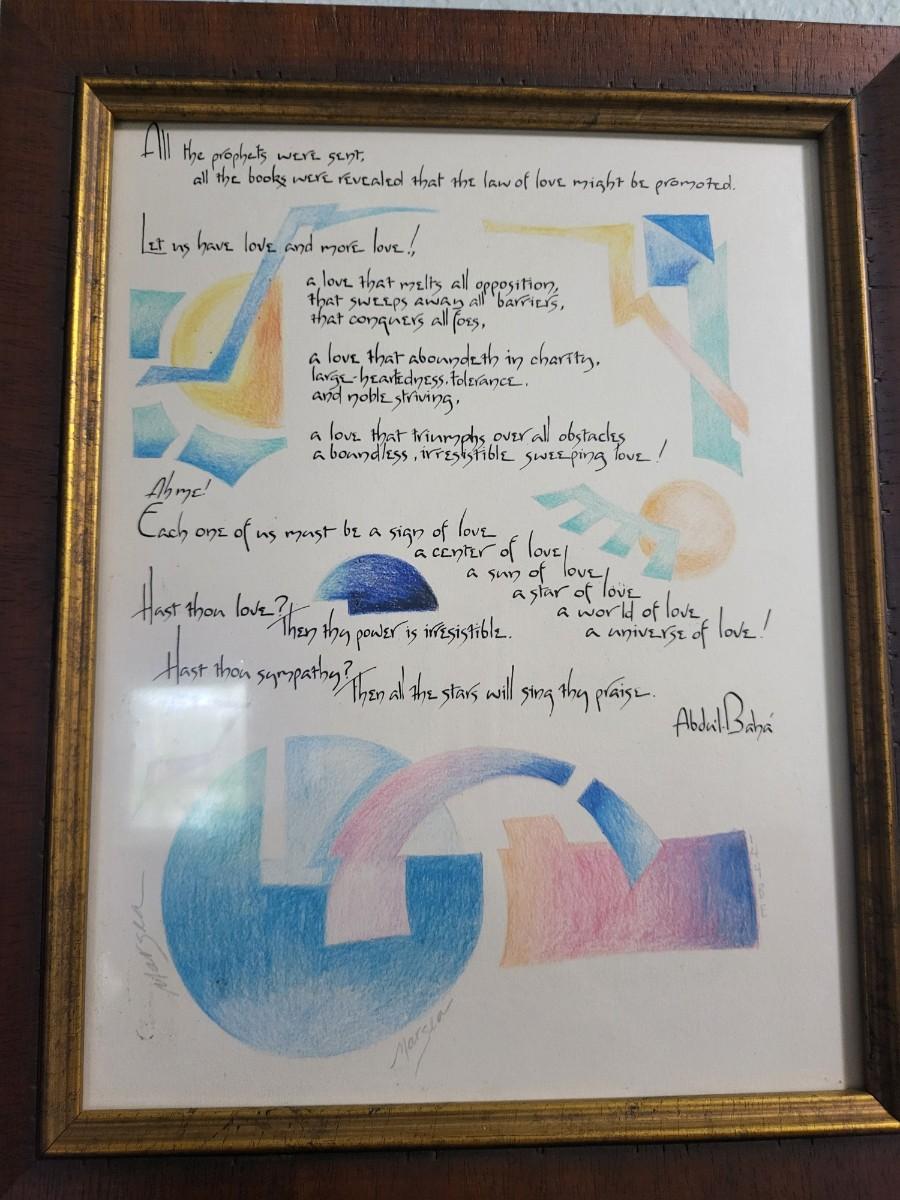 All the prophets were sent,
all the books were revealed that the law of love might be promoted.
Let us have love and more love!,
a love that melts all opposition,
that sweeps away all barriers,
that conquers all foes,
a love that aboundeth in charity,
large-heartedness, tolerance,
and noble striving,
a love that triumphs over all obstacles
a boundless, irresistible sweeping love!
Ah me!
Each one of us must be a sign of love
a center of love,
a sun of love,
a star of love
a world of love
a universe of love!
Hast thou love?
Then thy power is irresistible.
Hast thou sympathy?
Then all the stars will sing thy praise.
Abdul-Bahá
Margea
Margea